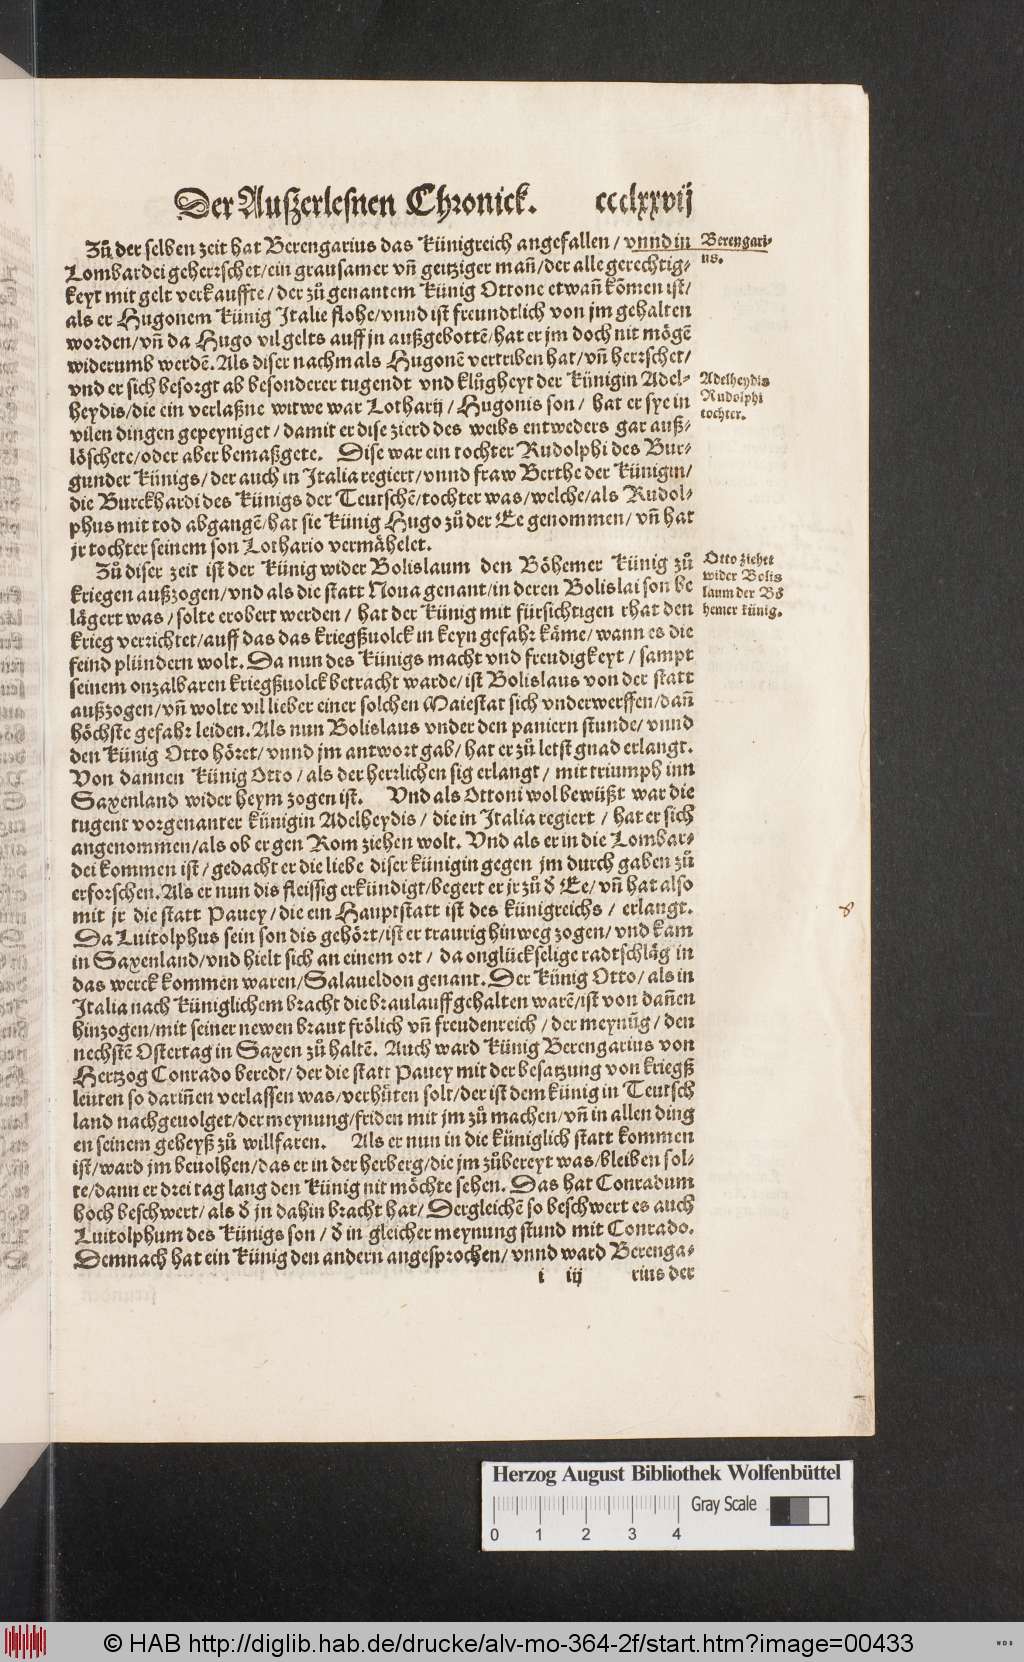 Der Außerlesnen Chronick. ccclxxvij
Zů der selben zeit hat Berengarius das künigreich angefallen / vnnd in
Berengari-
us.
Lombardei geherrschet/ein grausamer vñ geitziger mañ/der alle gerechtig-
keyt mit gelt verkauffte / der zů genantem künig Ottone etwañ kõmen ist/
als er Hugonem künig Italie flohe/vnnd ist freundtlich von jm gehalten
worden/vñ da Hugo vil gelts auff jn außgebottẽ/hat er jm doch nit mögẽ
widerumb werdẽ. Als diser nachmals Hugonẽ vertriben hat/vñ herrschet/
vnd er sich besorgt ab besonderer tugendt vnd klůgheyt der künigin Adel-
Adelheydis
Rudolphi
tochter.
heydis/die ein verlaßne witwe war Lotharij / Hugonis son / hat er sye in
vilen dingen gepeyniget / damit er dise zierd des weibs entweders gar auß-
löschete/oder aber bemaßgete. Dise war ein tochter Rudolphi des Bur-
gunder künigs/der auch in Italia regiert/vnnd fraw Berthe der künigin/
die Burckhardi des künigs der Teutschẽ/tochter was/welche/als Rudol-
phus mit tod abgangẽ/hat sie künig Hugo zů der Ee genommen/vñ hat
jr tochter seinem son Lothario vermähelet.
Zů diser zeit ist der künig wider Bolislaum den Böhemer künig zů
Otto ziehet
wider Bolis
laum der Bö
hemer künig.
kriegen außzogen/vnd als die statt Noua genant/in deren Bolislai son be
lägert was / solte erobert werden / hat der künig mit fürsichtigen rhat den
krieg verrichtet/auff das das kriegßuolck in keyn gefahr käme/wann es die
feind plündern wolt. Da nun des künigs macht vnd freudigkeyt / sampt
seinem onzalbaren kriegßuolck betracht warde/ist Bolislaus von der statt
außzogen/vñ wolte vil lieber einer solchen Maiestat sich vnderwerffen/dañ
höchste gefahr leiden. Als nun Bolislaus vnder den paniern stunde/ vnnd
den künig Otto höret/vnnd jm antwort gab/hat er zů letst gnad erlangt.
Von dannen künig Otto / als der herrlichen sig erlangt / mit triumph inn
Saxenland wider heym zogen ist. Vnd als Ottoni wol bewüßt war die
tugent vorgenanter künigin Adelheydis / die in Italia regiert / hat er sich
angenommen/als ob er gen Rom ziehen wolt. Vnd als er in die Lombar-
dei kommen ist / gedacht er die liebe diser künigin gegen jm durch gaben zů
erforschen. Als er nun dis fleissig erkündigt/begert er jr zů ð Ee/ vñ hat also
mit jr die statt Pauey / die ein Hauptstatt ist des künigreichs / erlangt.
Da Luitolphus sein son dis gehört/ist er traurig hinweg zogen/vnd kam
in Saxenland/vnd hielt sich an einem ort / da onglückselige radtschläg in
das werck kommen waren/Salaueldon genant. Der künig Otto/als in
Italia nach küniglichem bracht die braulauff gehalten warẽ/ist von dañen
hinzogen/mit seiner newen braut frölich vñ freudenreich / der meynũg / den
nechstẽ Ostertag in Saxen zů haltẽ. Auch ward künig Berengarius von
Hertzog Conrado beredt/ der die statt Pauey mit der besatzung von kriegß
leüten so dariñen verlassen was/verhüten solt/der ist dem künig in Teutsch
land nachgeuolget/der meynung/friden mit jm zů machen/vñ in allen ding
en seinem geheyß zů willfaren. Als er nun in die küniglich statt kommen
ist/ward jm beuolhen/das er in der herberg/die jm zůbereyt was/bleiben sol-
te/dann er drei tag lang den künig nit möchte sehen. Das hat Conradum
hoch beschwert/als ð jn dahin bracht hat/ Dergleichẽ so beschwert es auch
Luitolphum des künigs son / ð in gleicher meynung stund mit Conrado.
Demnach hat ein künig den andern angesprochen/ vnnd ward Berenga-
i iij rius der
Herzog August Bibliothek Wolfenbüttel
Gray Scale
0 1 2 3 4
© HAB http://diglib.hab.de/drucke/alv-mo-364-2f/start.htm?image=00433